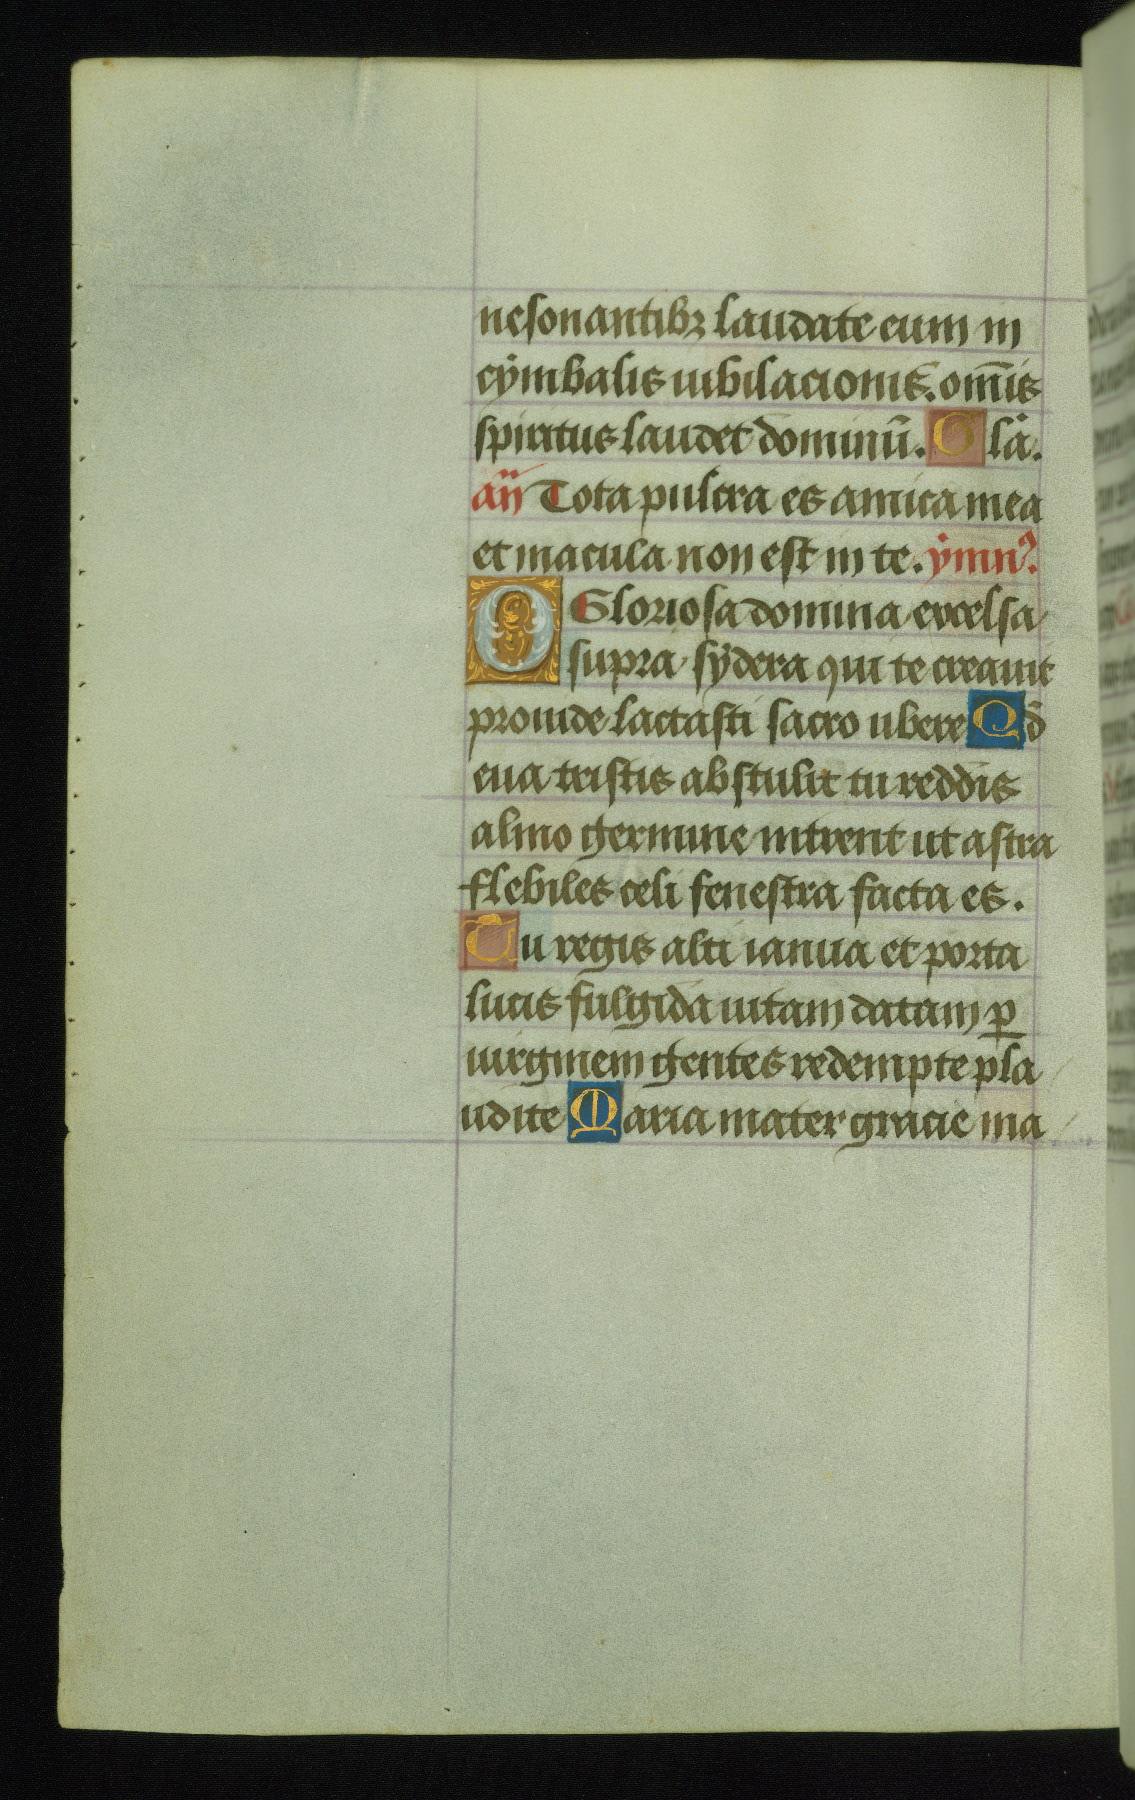 nesonantibꝫ laudate eum in
cÿmbalis iubilacionis. om̅is
spiritus laudet dominū. Gla̾.
an̄ Tota pulcra es amica mea
et macula non est in te. ÿmnꝰ.
O Gloriosa domina excelsa
supra sÿdera qui te creauit
prouide lactasti sacro ubere Qd̄
eua tristis abstulit tu reddis
almo germine intrent ut astra
flebiles celi fenestra facta es.
Tu regis alti ianua et porta
lucis fulgida uitam datam ꝑ
uirginem gentes redempte pla
udite Maria mater gracie ma